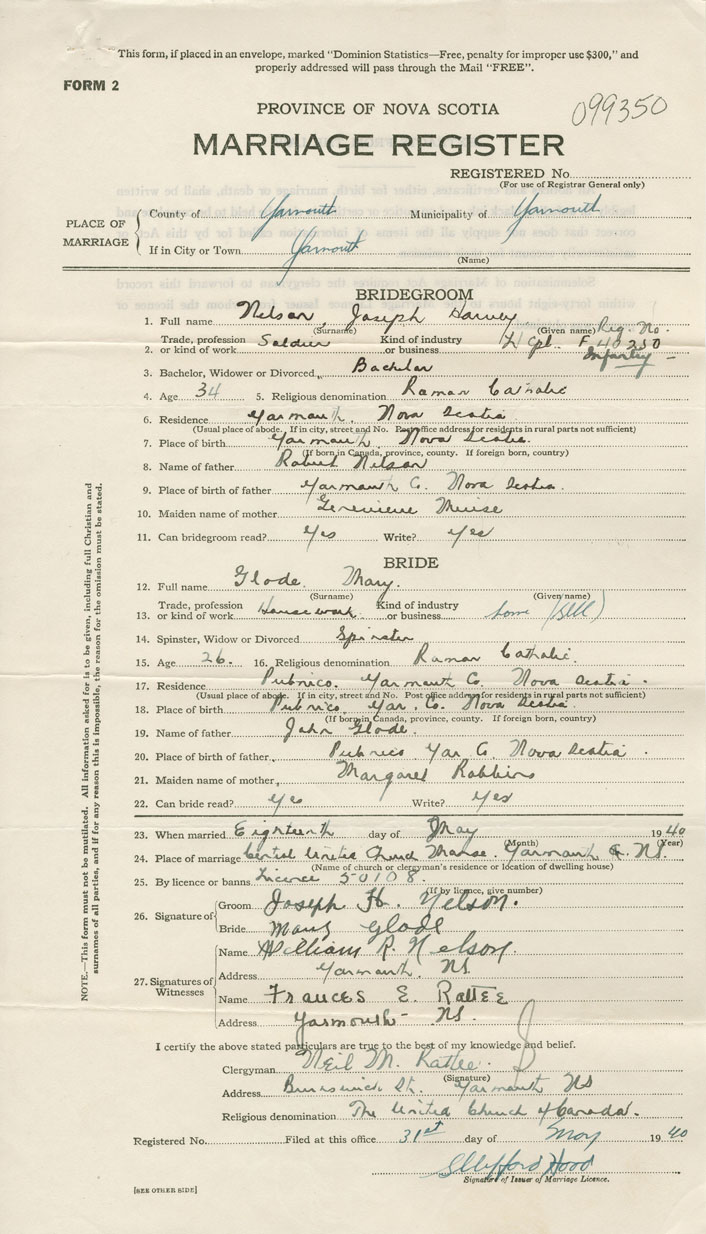 This form, if placed in an envelope, marked "Dominion Statistics—Free, penalty for improper use $300," and
properly addressed will pass through the Mail "FREE".
FORM 2
PROVINCE OF NOVA SCOTIA
099350
MARRIAGE REGISTER
REGISTERED No.
(For use of Registrar General only)
PLACE OF MARRIAGE
County of Yarmouth Municipality of Yarmouth
If in City or Town Yarmouth
(Name)
BRIDEGROOM
1. Full name Nelson, Joseph Harvey
(Surname) (Given name) Reg. No.
2. Trade, profession or kind of work Soldier Kind of industry or business L/Cpl. F 40250
Infantry
3. Bachelor, Widower or Divorced Bachelor
4. Age 34 5. Religious denomination Roman Catholic
6. Residence Yarmouth, Nova Scotia
(Usual place of abode. If in city, street and No. Post office address for residents in rural parts not sufficient)
7. Place of birth Yarmouth, Nova Scotia.
(If born in Canada, province, county. If foreign born, country)
8. Name of father Robert Nelson
9. Place of birth of father Yarmouth Co. Nova Scotia.
10. Maiden name of mother Genevieve Muise
11. Can bridegroom read? Yes Write? Yes
BRIDE
12. Full name Glode, Mary.
(Surname) (Given name)
13. Trade, profession or kind of work Housework Kind of industry or business home
14. Spinster, Widow or Divorced Spinster
15. Age 26. 16. Religious denomination Roman Catholic.
17. Residence Pubnico, Yarmouth Co. Nova Scotia.
(Usual place of abode. If in city, street and No. Post office address for residents in rural parts not sufficient)
18. Place of birth Pubnico, Yar. Co. Nova Scotia.
(If born in Canada, province, county. If foreign born, country)
19. Name of father John Glode.
20. Place of birth of father Pubnico Yar Co. Nova Scotia.
21. Maiden name of mother Margaret Robbins
22. Can bride read? Yes Write? Yes
23. When married Eighteenth day of May 1940
(Month) (Year)
24. Place of marriage Central United Church Manse. Yarmouth Co. NS.
(Name of church or clergyman's residence or location of dwelling house)
25. By licence or banns Licence 50108.
(If by licence, give number)
26. Signature of
Groom Joseph H. Nelson.
Bride Mary Glode
27. Signatures of Witnesses
Name William R. Nelson.
Address Yarmouth, NS
Name Frances E. Rattee
Address Yarmouth NS.
I certify the above stated particulars are true to the best of my knowledge and belief.
Clergyman Neil M. Rattee.
(Signature)
Address Brunswick St. Yarmouth NS
Religious denomination The United Church of Canada.
Registered No. Filed at this office 31st day of May 1940
Clifford Hood
Signature of Issuer of Marriage Licence.
[SEE OTHER SIDE]
NOTE.—This form must not be mutilated. All information asked for is to be given, including full Christian and
surnames of all parties, and if for any reason this is impossible, the reason for the omission must be stated.